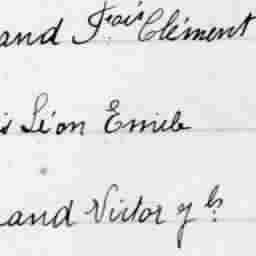 and F.ois Clément
s Léon Emile
and Victor